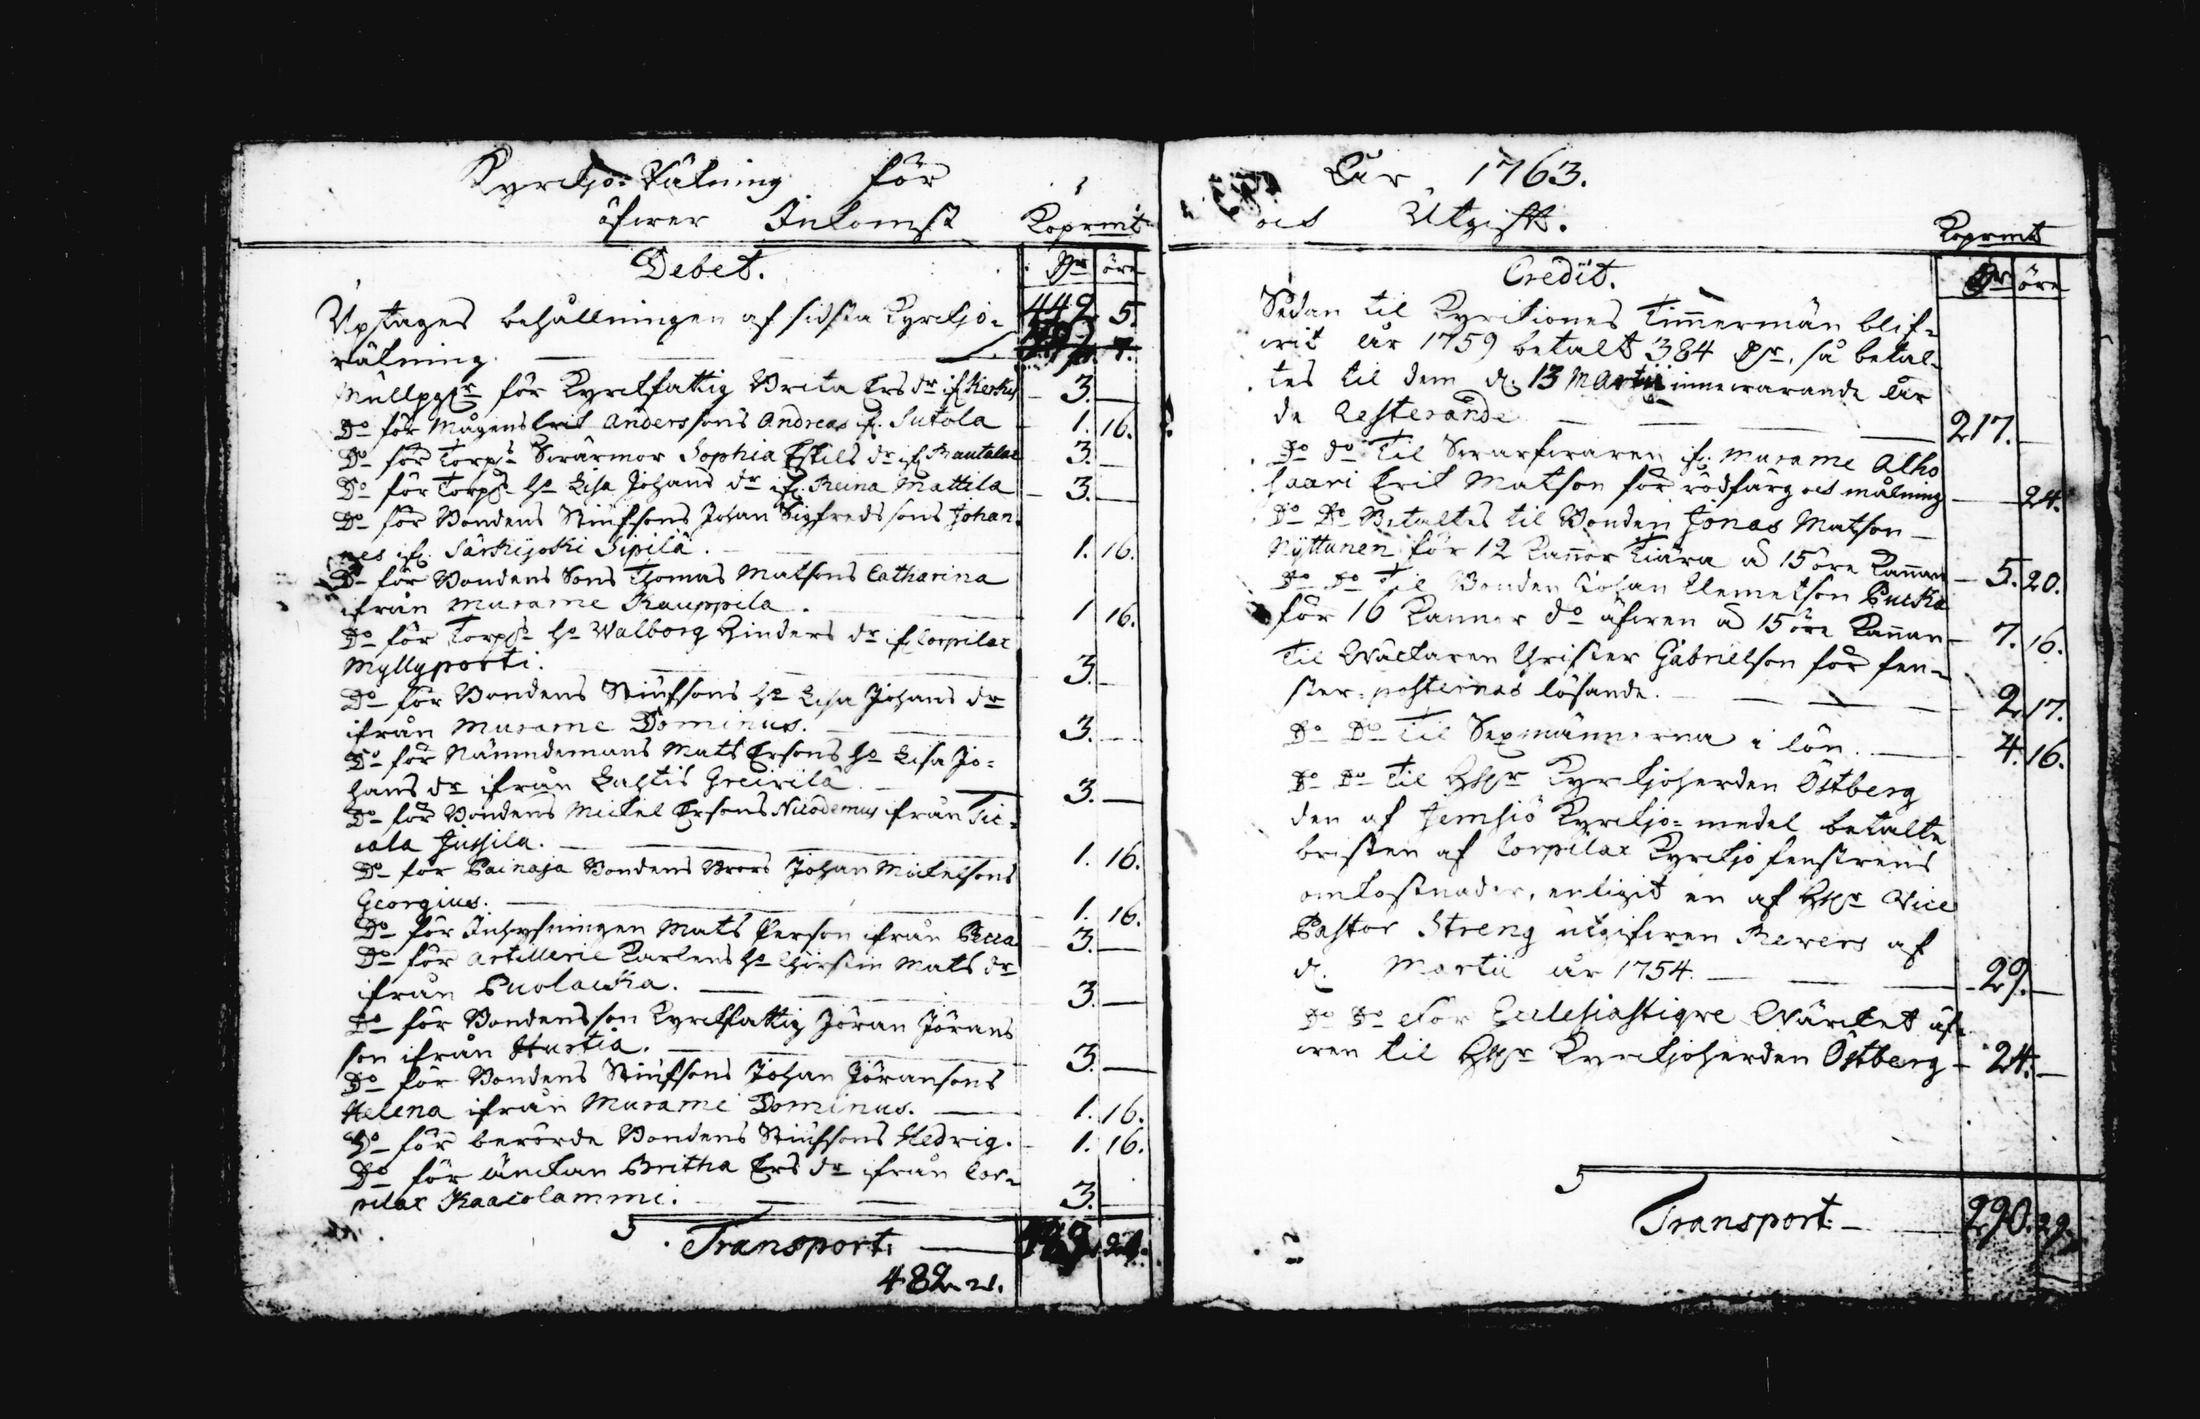 Kyrckjo-Räkning för
öfwer Inkomst Kopr mt
Debet. Dr öre
Uptages behållningen af sidsta Kyrckjo- 449. 5.
räkning.
Mullpgr för Kyrckfattig Brita Ersdr if. 3.
Do för Mågens Erik Anderssons Andreas if. Sutola 1. 16.
Do för Torp: Swärmor Sophia Eskils dr if. Rautalax 3.
Do för Torp: ho Lisa Johans dr if. Reina Mattila 3.
Do för Bondens Stiufsons Johan Sigfredssons Johan-
nes if. Särkijoki Sipilä. 1. 16.
Do för Bondens Sons Thomas Matsons Catharina
ifrån Murame Kauppila. 1 16.
Do för Torp: ho Walborg Hinders dr if. Corpilax
Myllyportti. 3.
Do för Bondens Stiufsons ho Lisa Johans dr
ifrån Murame Dominus. 3.
Do för Nämndemans Mats Ersons ho Lisa Jo-
hans dr ifrån Lahtis Greivilä. 3.
Do för Bondens Mickel Ersons Nicodemus ifrån Tic-
cala Jussila. 1. 16.
Do för Painaja Bondens Brors Johan Mickelsons
Georgius. 1. 16.
Do för Inhysningen Mats Person ifrån Pecca 3.
Do för Artillerie Karlens ho Christin Mats dr
ifrån Puolacka. 3.
Do för Bondens son Kyrckfattig Jöran Jörans
son ifrån Hustia. 3.
Do för Bondens Stiufsons Johan Jöransons
Helena ifrån Murame Dominus. 1. 16.
Do för berörde Bondens Stiufsons Hedvig. 1. 16.
Do för änckan Britha Ers dr ifrån Cor-
pilax Kaacolammi. 3.
Transport:
482. 21.
År 1763.
och Utgift.
Kopr mt
Credit. Dr öre
Sedan til Kyrckiones Timmermän blif-
wit år 1759 betalt 384 Dr, så betal-
tes til dem d. 13 Martii innewarande år
de resterande 217.
Do Do Til Swarfwaren if. Murame Alho
saari Erik Matson för rödfärg och målning 24.
Do Do Betaltes til Bonden Jonas Matson
Nyttunen för 12 Kannor Tiära à 15 öre Kannan 5. 20.
Do Do Til Bonden Johan Clemetson Pucka
för 16 Kannor do äfwen à 15 öre Kannan 7. 16.
Til Wäcktaren Christer Gabrielson för fen-
ster-posternas lösande. 2. 17.
Do Do Til Sexmännerna i lön. 4. 16.
Do Do Til Hr Kyrckjoherden Östberg
den af Jemsiö Kyrckjo-medel betalte
bristen af Corpilax Kyrckjo fenstrens
omkostnader, enligit en af Hr Vice
Pastor Streng utgifwen Revers af
d. Martii år 1754. 29.
Do Do För Ecclesiastiqve Wärcket äf-
wen til Hr Kyrckjoherden Östberg 24.
Transport: 290. 29.